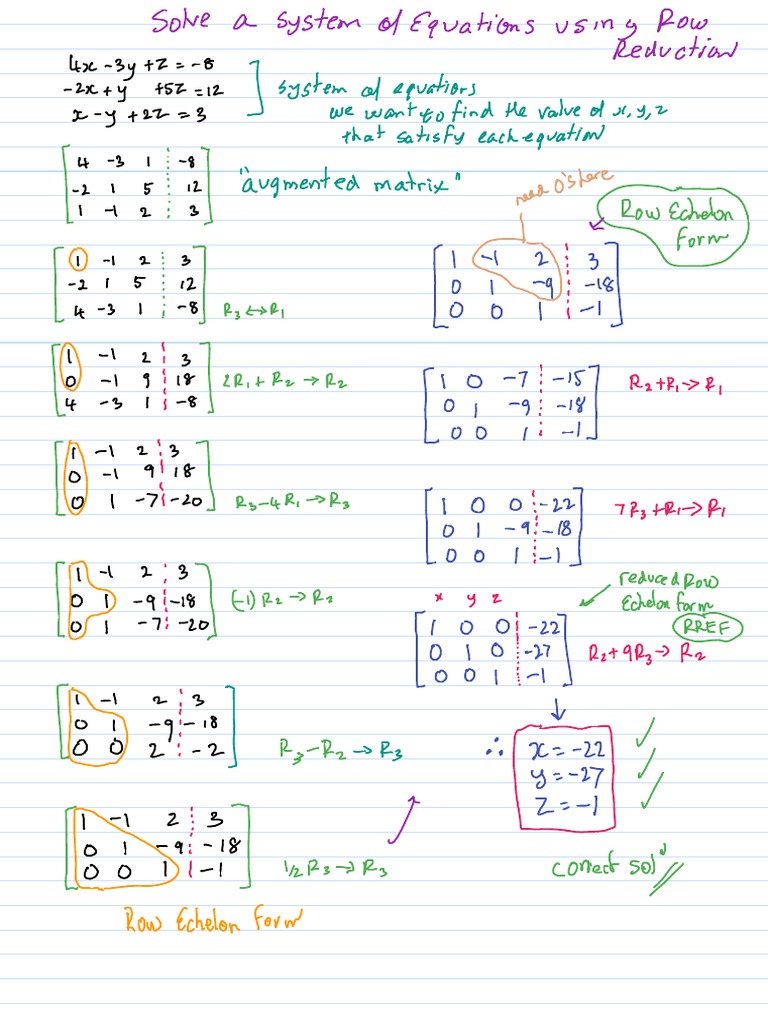 Solve a System of Equations using Row
Reduction
4x - 3y + z = -8
-2x + y +5z = 12
x - y + 2z = 3
System of equations
we want to find the value of x, y, z
that satisfy each equation
[ 4 -3 1 | -8 ]
[ -2 1 5 | 12 ]
[ 1 -1 2 | 3 ]
"augmented matrix"
[ 1 -1 2 | 3 ]
[ -2 1 5 | 12 ]
[ 4 -3 1 | -8 ] R3 ↔ R1
[ 1 -1 2 | 3 ]
[ 0 -1 9 | 18 ] 2R1 + R2 → R2
[ 4 -3 1 | -8 ]
[ 1 -1 2 | 3 ]
[ 0 -1 9 | 18 ]
[ 0 1 -7 | -20 ] R3 - 4R1 → R3
[ 1 -1 2 | 3 ]
[ 0 1 -9 | -18 ] (-1) R2 → R2
[ 0 1 -7 | -20 ]
[ 1 -1 2 | 3 ]
[ 0 1 -9 | -18 ]
[ 0 0 2 | -2 ] R3 - R2 → R3
[ 1 -1 2 | 3 ]
[ 0 1 -9 | -18 ]
[ 0 0 1 | -1 ] 1/2 R3 → R3
Row Echelon Form
need 0's here
Row Echelon
Form
[ 1 -1 2 | 3 ]
[ 0 1 -9 | -18 ]
[ 0 0 1 | -1 ]
[ 1 0 -7 | -15 ] R2 + R1 → R1
[ 0 1 -9 | -18 ]
[ 0 0 1 | -1 ]
[ 1 0 0 | -22 ] 7R3 + R1 → R1
[ 0 1 -9 | -18 ]
[ 0 0 1 | -1 ]
reduced Row
Echelon form
RREF
x y z
[ 1 0 0 | -22 ]
[ 0 1 0 | -27 ] R2 + 9R3 → R2
[ 0 0 1 | -1 ]
∴ x = -22 ✓
y = -27 ✓
z = -1 ✓
correct solⁿ